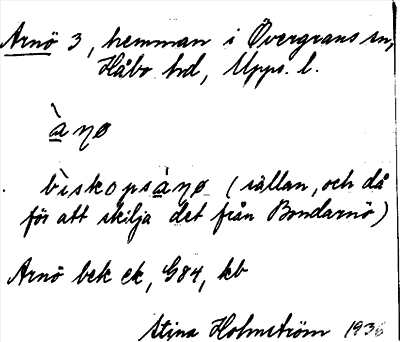 Arnö 3, hemman i Övergrans sn,
Håbo hd, Upps. l.
àṇø
bìskopsàṇø (sällan, och då
för att skilja det från Bondarnö)
Arnö bek ek, G84, kb
Stina Holmström 1936